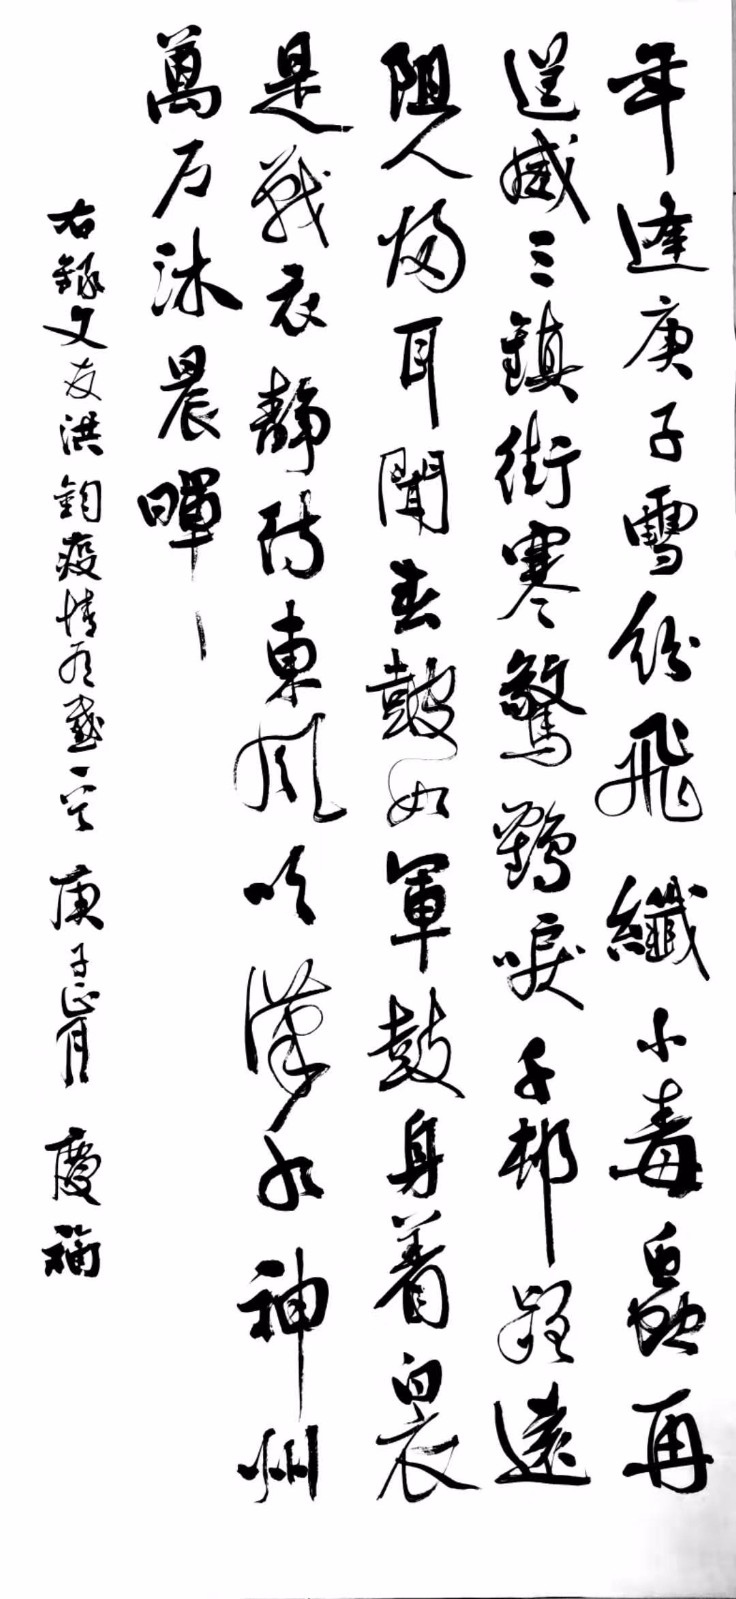 年逢庚子雪紛飛纖小毒蟲再
逞威三鎮街寒驚鶴唳千邨路遠
阻人歸耳聞春鼓如軍鼓身着白衣
是戰衣靜待東風吹漢水神州
萬方沐晨暉
右錄文友洪鈞疫情有感一首 庚子正月 慶福